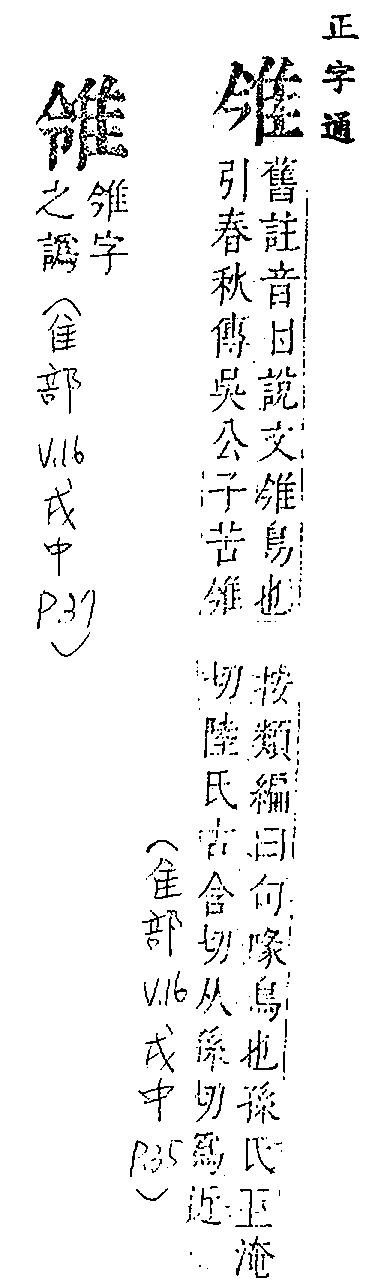 正字通
雂
舊註音日說文雂鳥也
引春秋傳吳公子苦雂
按類編曰句喙鳥也孫氏巨淹
切陸氏古含切从孫切爲近
(隹部 V.16 戌中 P.35)
雂字
之譌
(隹部 V.16 戌中 P.37)